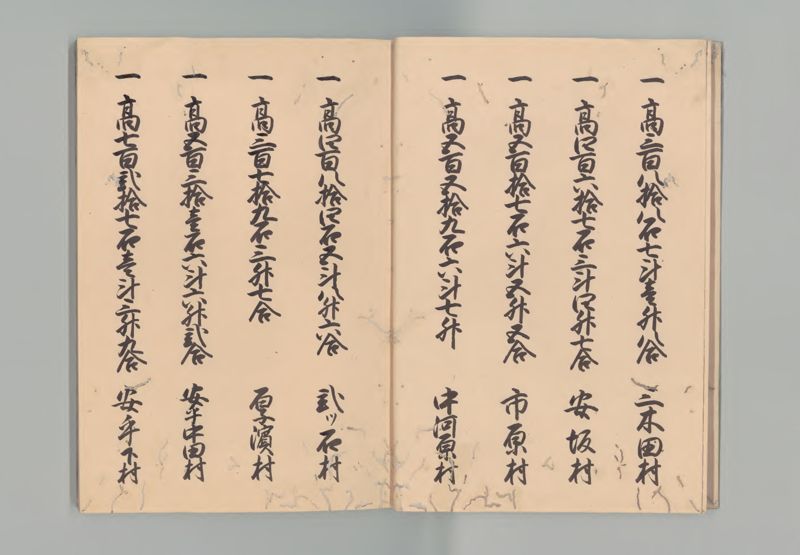 一 高三百八拾八石七斗壱升八合 三木田村
一 高四百六拾七石三斗四升七合 安坂村
一 高五百拾七石六斗五升五合 市原村
一 高五百五拾九石六斗七升 中河原村
一 高四百八拾四石五斗八升六合 弐ツ石村
一 高三百七拾九石三升七合 濱村
一 高五百三拾壱石六斗六升弐合 安乎中田村
一 高七百弐拾七石壱斗三升九合 安乎下村